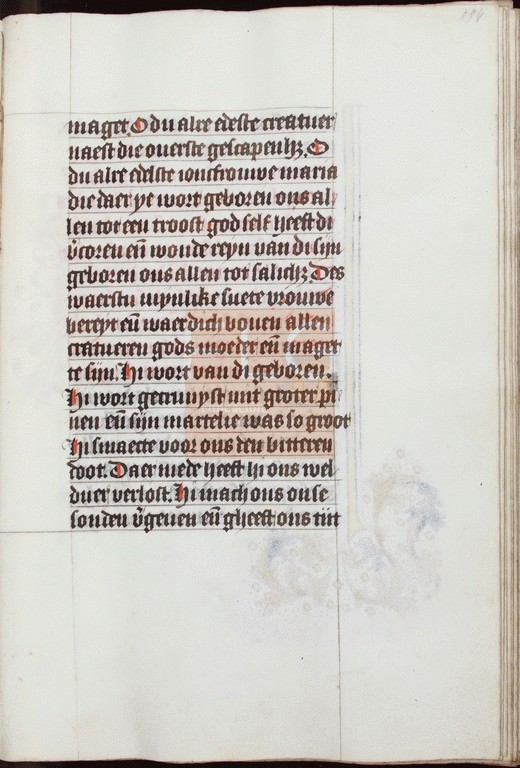 194
maget. O du alre edelste creatuer
naest die ouerste gescapenhz. O
du alre edelste ionfrouwe maria
die daer ye wort geboren ons al
len tot een troost god self heeft di
v̄coren en̄ woude reyn van di sijn
geboren ons allen tot salichz. Des
waerstu mynlike suete vrouwe
bereyt en̄ waerdich bouen allen
cratueren gods moeder en̄ maget
te sijn. Hi wort van di geboren.
Hi wort gecruuyst mit groter pi
nen en̄ sijn martelie was so groot
Hi smaecte voor ons den bitteren
doot. Daer mede heeft hi ons wel
duer verlost. Hi mach ons onse
sonden v̄geuen en̄ gheeft ons tijt